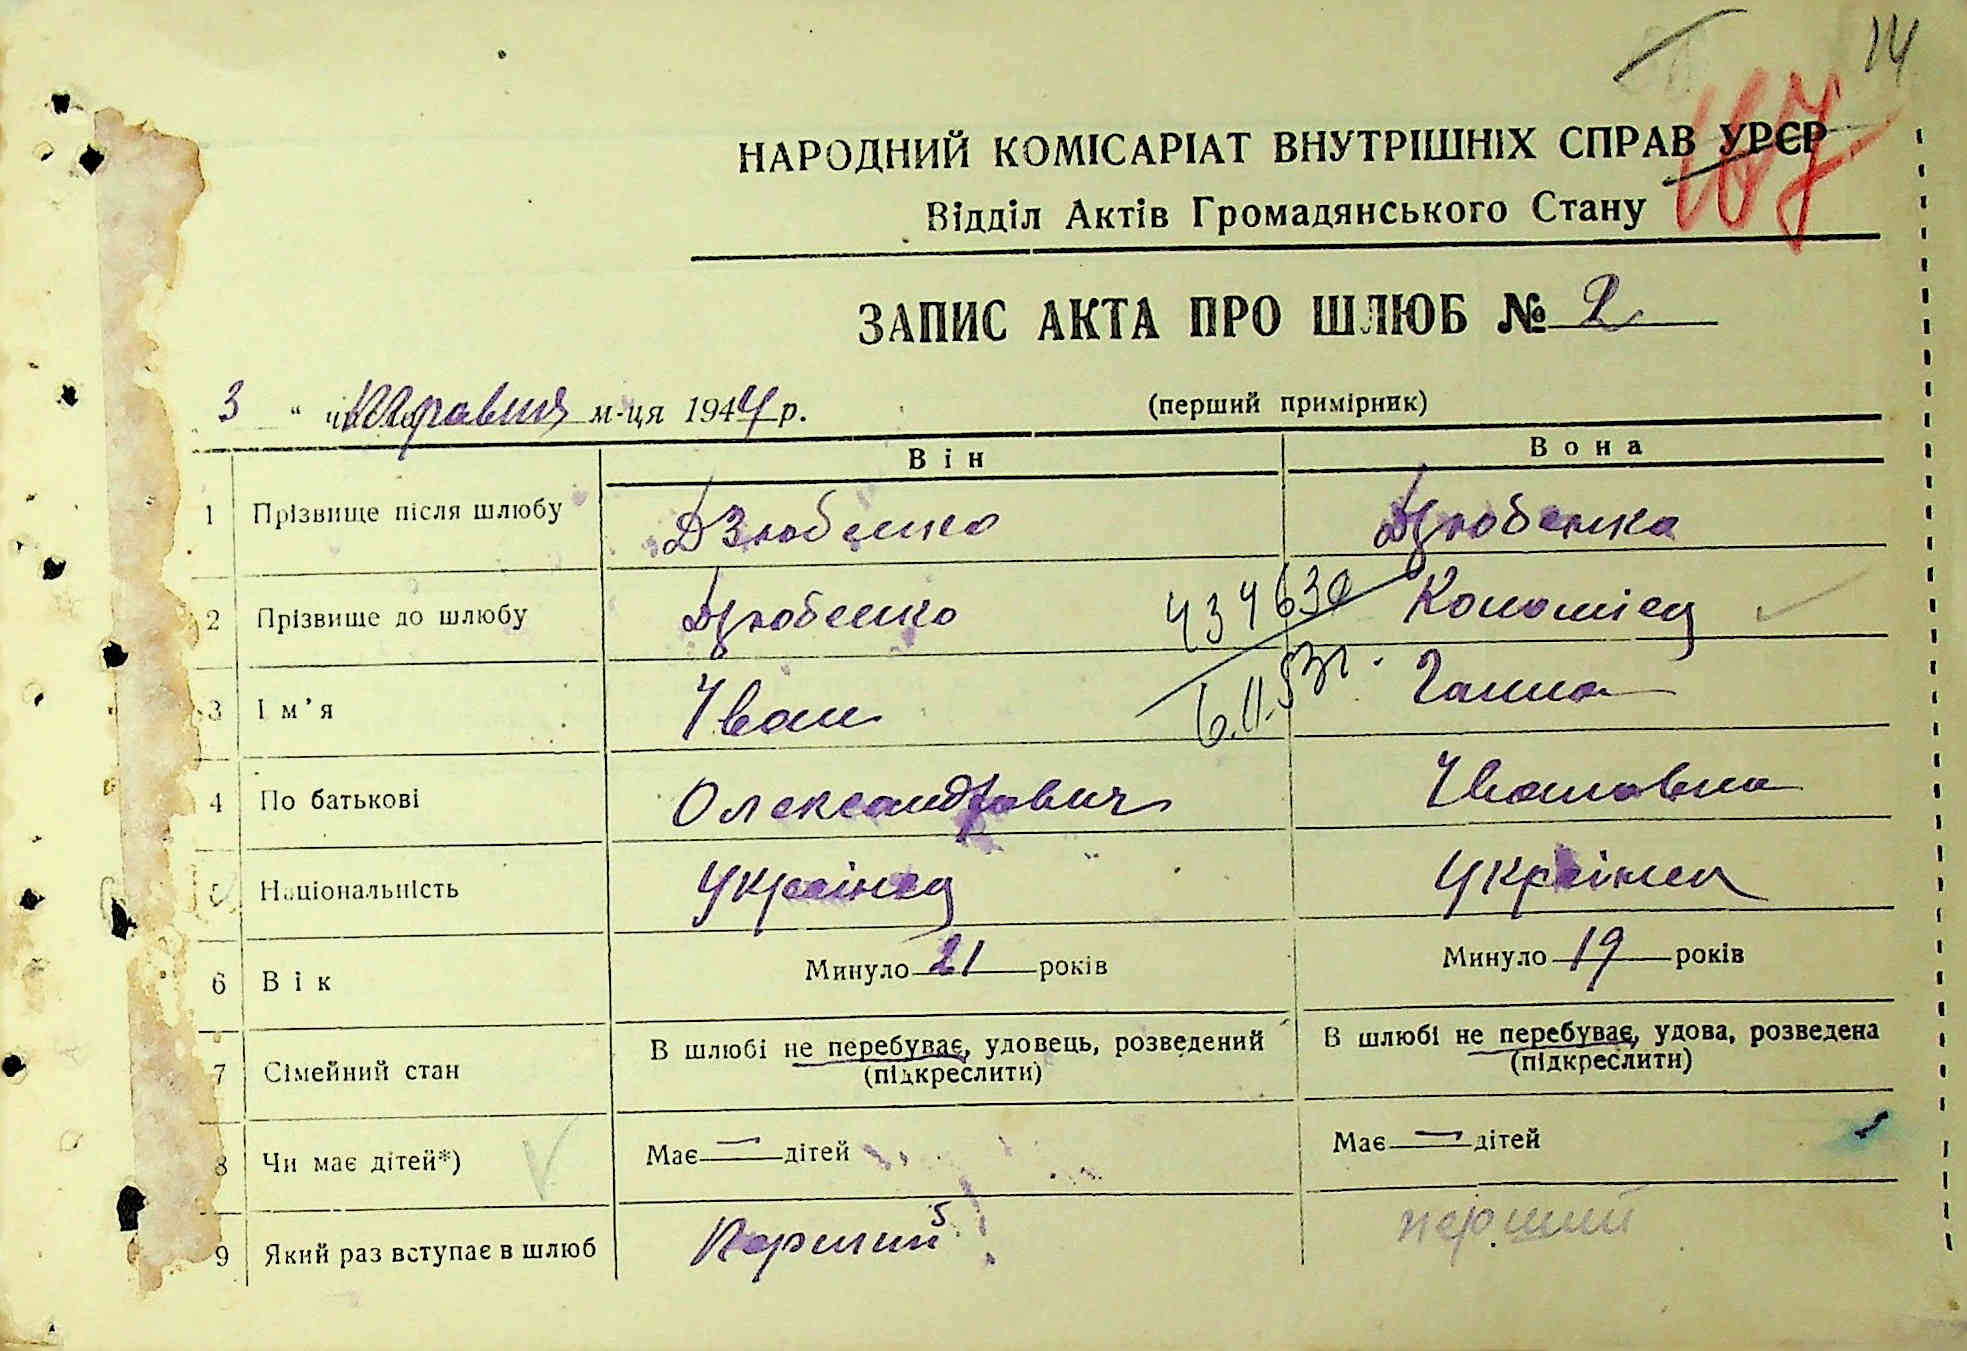 14
167
НАРОДНИЙ КОМІСАРІАТ ВНУТРІШНІХ СПРАВ УРЄР
Відділ Актів Громадянського Стану
ЗАПИС АКТА ПРО ШЛЮБ № 2
3 " " Травня м-ця 1944 р. (перший примірник)
Він Вона
1 Прізвище після шлюбу Дзюбенко Дзюбенко
2 Прізвище до шлюбу Дзюбенко 434630 Коломієц
3 Ім'я Іван 6.II.53г. Ганна
4 По батькові Олександрович Івановна
5 Національність Українец Українка
6 Вік Минуло 21 років Минуло 19 років
7 Сімейний стан В шлюбі не перебуває, удовець, розведений (підкреслити) В шлюбі не перебуває, удова, розведена (підкреслити)
8 Чи має дітей*) Має — дітей Має — дітей
9 Який раз вступає в шлюб Перший перший